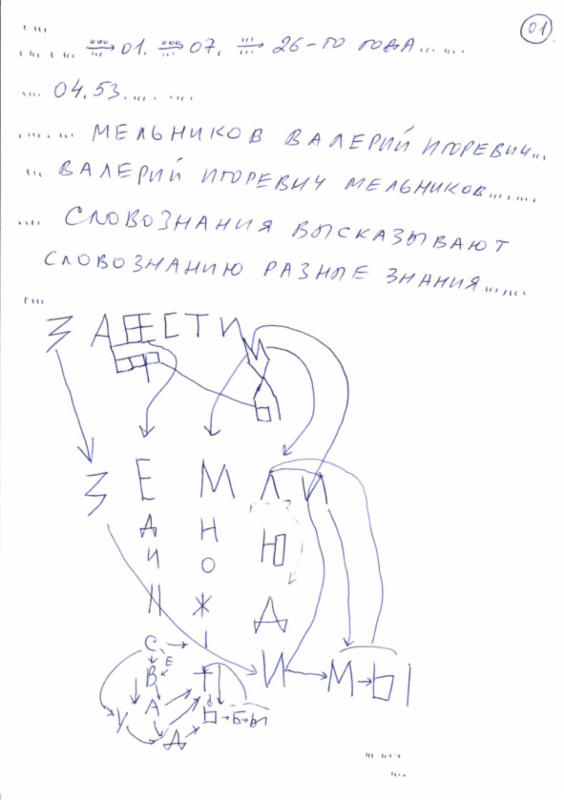 01
.... ⇒ 01. ⇒ 07. → 26-ГО ГОДА......
... 04.53.... ....
...... МЕЛЬНИКОВ ВАЛЕРИЙ ИГОРЕВИЧ...
... ВАЛЕРИЙ ИГОРЕВИЧ МЕЛЬНИКОВ......
.... СЛОВОЗНАНИЯ ВЫСКАЗЫВАЮТ
СЛОВОЗНАНИЮ РАЗНЫЕ ЗНАНИЯ......
З Е М Л И
Е Д И Н
М Н О Ж
Л Ю Д И
М Ы